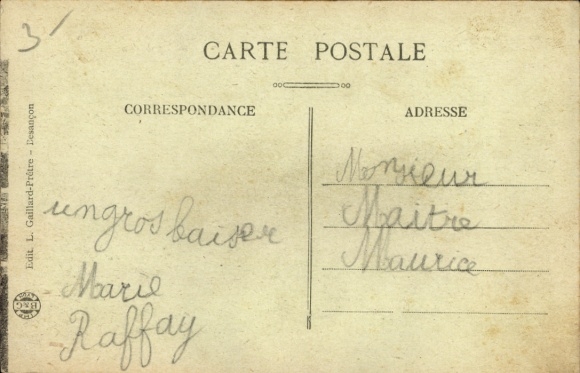 3
CARTE POSTALE
CORRESPONDANCE
ADRESSE
Edit. L. Gaillard-Prêtre - Besançon
un gros baiser
Marie
Raffay
Monsieur
Maitre
Maurice
B&G